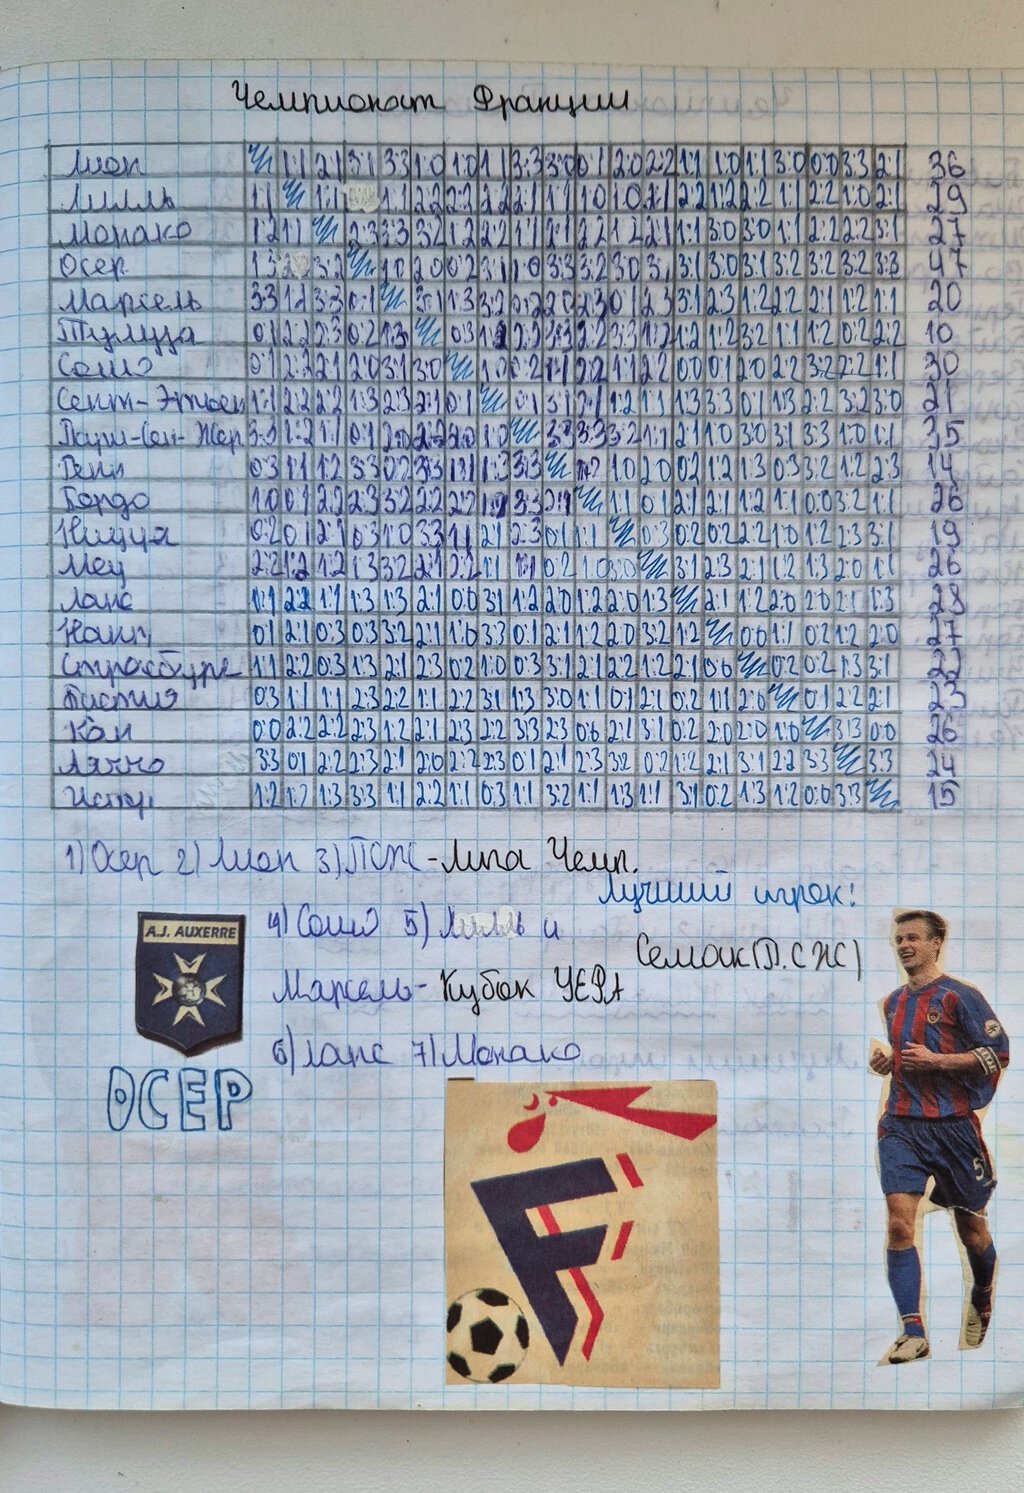 Чемпионат Франции
Лион 1:1 2:1 3:1 3:3 1:0 1:0 1:1 3:3 3:0 0:1 2:0 2:2 1:1 1:0 1:1 3:0 0:0 3:3 2:1 36
Лилль 1:1 1:1 1:1 2:2 2:2 2:2 2:1 1:1 1:0 1:0 2:1 2:2 1:2 2:2 1:1 2:2 1:0 2:1 29
Монако 1:2 1:1 2:3 3:3 3:2 1:2 2:2 1:1 2:1 2:2 1:2 2:1 1:1 3:0 3:0 1:1 2:2 2:2 3:1 27
Осер 1:3 3:2 1:0 2:0 0:2 3:1 1:0 3:3 3:2 3:0 3:1 3:1 3:0 3:1 3:2 3:2 3:2 3:3 47
Марсель 3:3 1:1 3:3 0:1 3:1 1:3 3:2 0:2 2:0 2:3 0:1 2:3 3:1 2:3 1:2 2:2 2:1 1:2 1:1 20
Тулуза 0:1 2:2 2:3 0:2 1:3 0:3 1:2 2:2 3:3 2:2 3:3 1:2 1:2 1:2 3:2 1:1 1:2 0:2 2:2 10
Сошо 0:1 2:2 2:1 2:0 3:1 3:0 1:0 0:2 1:1 2:2 1:1 2:2 0:0 0:1 2:0 2:2 3:2 2:2 1:1 30
Сент-Этьен 1:1 2:2 2:2 1:3 2:3 2:1 0:1 0:1 3:1 1:2 1:1 1:3 3:3 0:1 1:3 2:2 3:2 3:0 21
Пари-Сен-Жер 3:3 1:2 1:1 0:1 2:0 2:2 2:0 1:0 3:3 3:3 3:2 1:1 2:1 1:0 3:0 3:1 3:3 1:0 1:1 35
Ренн 0:3 1:1 1:2 3:3 0:2 3:3 1:1 1:3 3:3 1:2 1:0 2:0 0:2 1:2 1:3 0:3 3:2 1:2 2:3 14
Бордо 1:0 0:1 2:2 2:3 3:2 2:2 2:2 3:3 2:1 1:1 0:1 2:1 2:1 1:2 1:1 0:0 3:2 1:1 26
Ницца 0:2 0:1 2:1 0:3 1:0 3:3 1:1 2:1 2:3 0:1 1:1 0:3 0:2 0:2 2:2 1:0 1:2 2:3 3:1 19
Мец 2:2 1:2 1:2 1:3 3:2 2:1 2:2 1:1 1:1 0:2 1:0 3:0 3:1 2:3 2:1 1:2 1:3 2:0 1:1 26
Ланс 1:1 2:2 1:1 1:3 1:3 2:1 0:0 3:1 1:2 2:0 1:2 2:0 1:3 2:1 1:2 2:0 2:0 2:1 1:3 28
Нант 0:1 2:1 0:3 0:3 3:2 2:1 1:0 3:3 0:1 2:1 1:2 2:0 3:2 1:2 0:0 1:1 0:2 1:2 2:0 27
Страсбург 1:1 2:2 0:3 1:3 2:1 2:3 0:2 1:0 0:3 3:1 2:1 2:2 1:2 2:1 0:0 0:2 0:2 1:3 3:1 22
Бастия 0:3 1:1 1:1 2:3 2:2 1:1 2:2 3:1 1:3 3:0 1:1 0:1 2:1 0:2 1:1 2:0 0:1 2:2 2:1 23
Кан 0:0 2:2 2:2 2:3 1:2 2:1 2:3 2:2 3:3 2:3 0:0 2:1 3:1 0:2 2:0 2:0 1:0 3:3 0:0 26
Аяччо 3:3 0:1 2:2 2:3 2:1 2:0 2:2 2:3 0:1 2:1 2:3 3:2 0:2 1:2 2:1 3:1 2:2 3:3 3:3 24
Истр 1:2 1:2 1:3 3:3 1:1 2:2 1:1 0:3 1:1 3:2 1:1 1:3 1:1 3:1 0:2 1:3 1:2 0:0 3:3 15
1) Осер 2) Лион 3) ПСЖ - Лига Чемп.
Лучший игрок:
4) Сошо 5) Лилль и
Семак (П.СЖ)
Марсель - Кубок УЕФА
6) Ланс 7) Монако
A.J. AUXERRE
ОСЕР
F
5